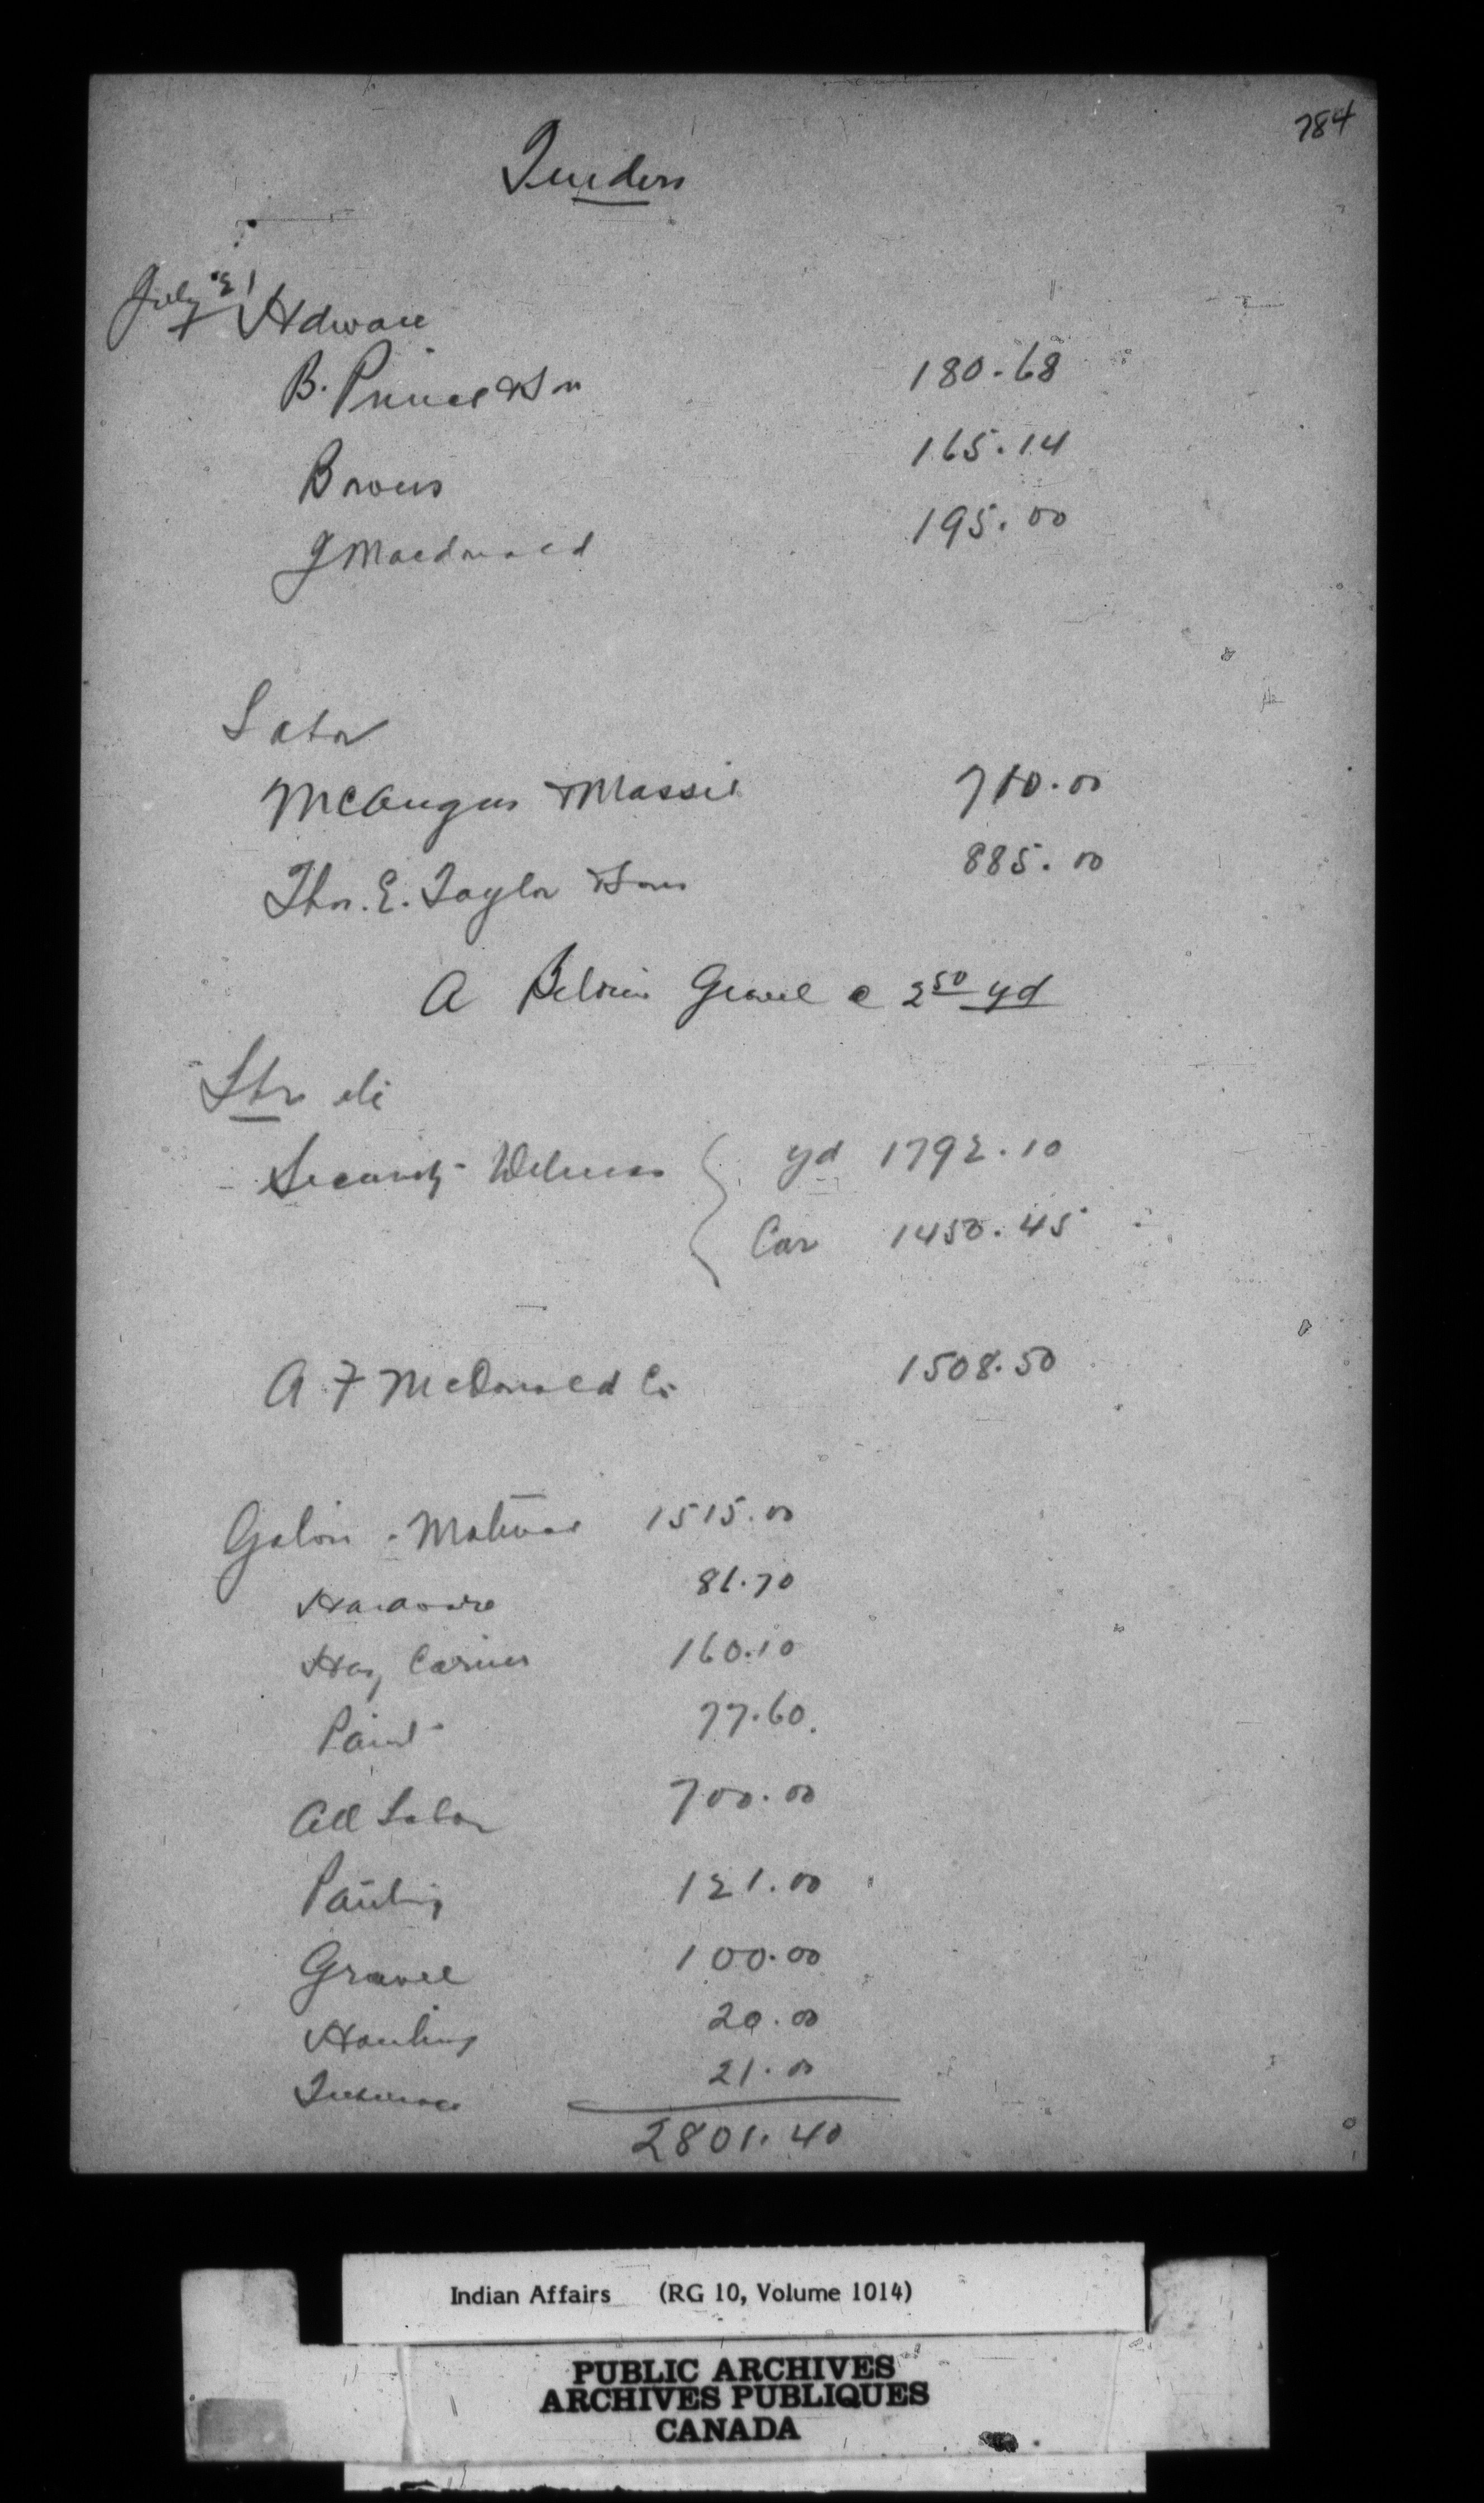 784
Tenders
July '21 Hdware
B. Prince & Son 180.68
Bowers 165.14
J Macdonald 195.00
Labor
McAngus & Massie 710.00
Thos. E. Taylor & Sons 885.00
A Gravel @ 2 50 yd
Security yd 1792.10
Car 1450.45
A F McDonald Co 1508.50
1515.00
Hardware 81.70
Hay Carrier 160.10
Paint 77.60
All Labor 700.00
Painting 121.00
Gravel 100.00
Hauling 20.00
Insurance 21.00
2801.40
Indian Affairs (RG 10, Volume 1014)
PUBLIC ARCHIVES
ARCHIVES PUBLIQUES
CANADA